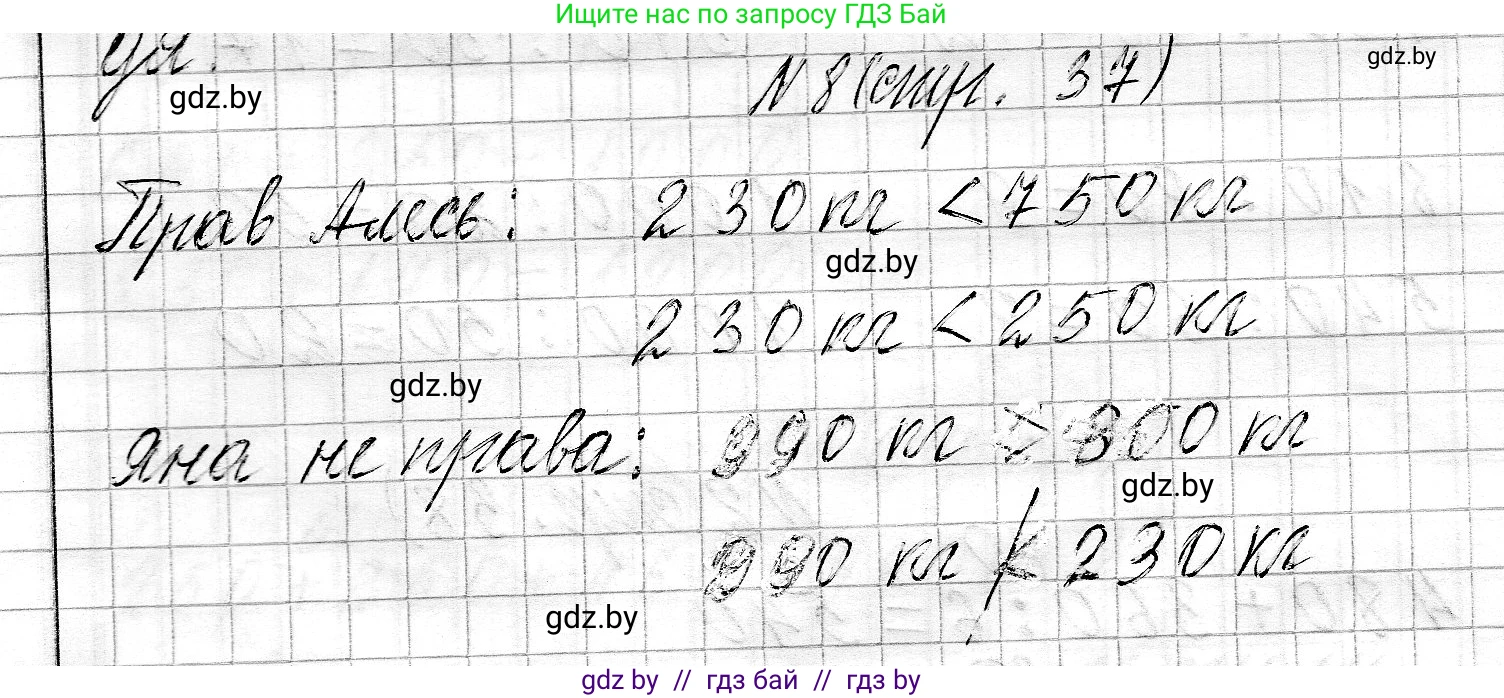 Ищите нас по запросу ГДЗ Бай
gdz.by
gdz.by
N 8 (стр. 37)
Прав Алесь: 230 кг < 750 кг
gdz.by
230 кг < 250 кг
gdz.by
Яна не права: 990 кг > 800 кг
gdz.by
990 кг < 230 кг
gdz.by
gdz.by // гдз бай // гдз by